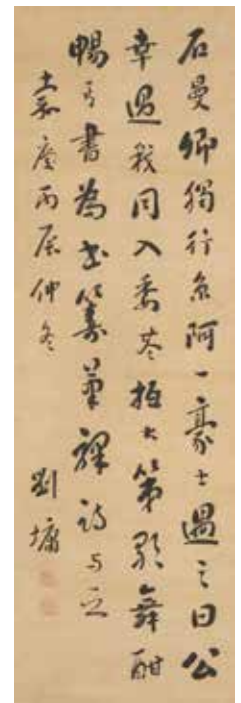 石曼卿獨行京阿一豪士過之曰公
幸過我同入委巷抵大第歌舞酣
暢者書為書籌筆驛詩與之
嘉慶丙辰仲冬 劉墉